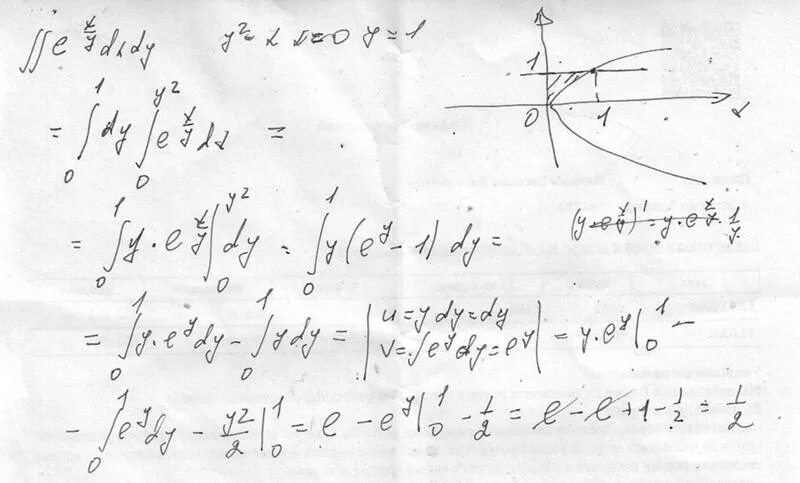 ∬ e^(x/y) dx dy   y² = x  x=0  y = 1
= ∫₀¹ dy ∫₀^(y²) e^(x/y) dx =
= ∫₀¹ y · e^(x/y) |₀^(y²) dy = ∫₀¹ y (e^y − 1) dy =   (y · e^(x/y)) = y · e^(x/y) · 1/y
= ∫₀¹ y · e^y dy − ∫₀¹ y dy = | u = y dy = dy
v = ∫ e^y dy = e^y | = y · e^y |₀¹ −
− ∫₀¹ e^y dy − y²/2 |₀¹ = e − e^y |₀¹ − 1/2 = e − e + 1 − 1/2 = 1/2
1
0
1
x